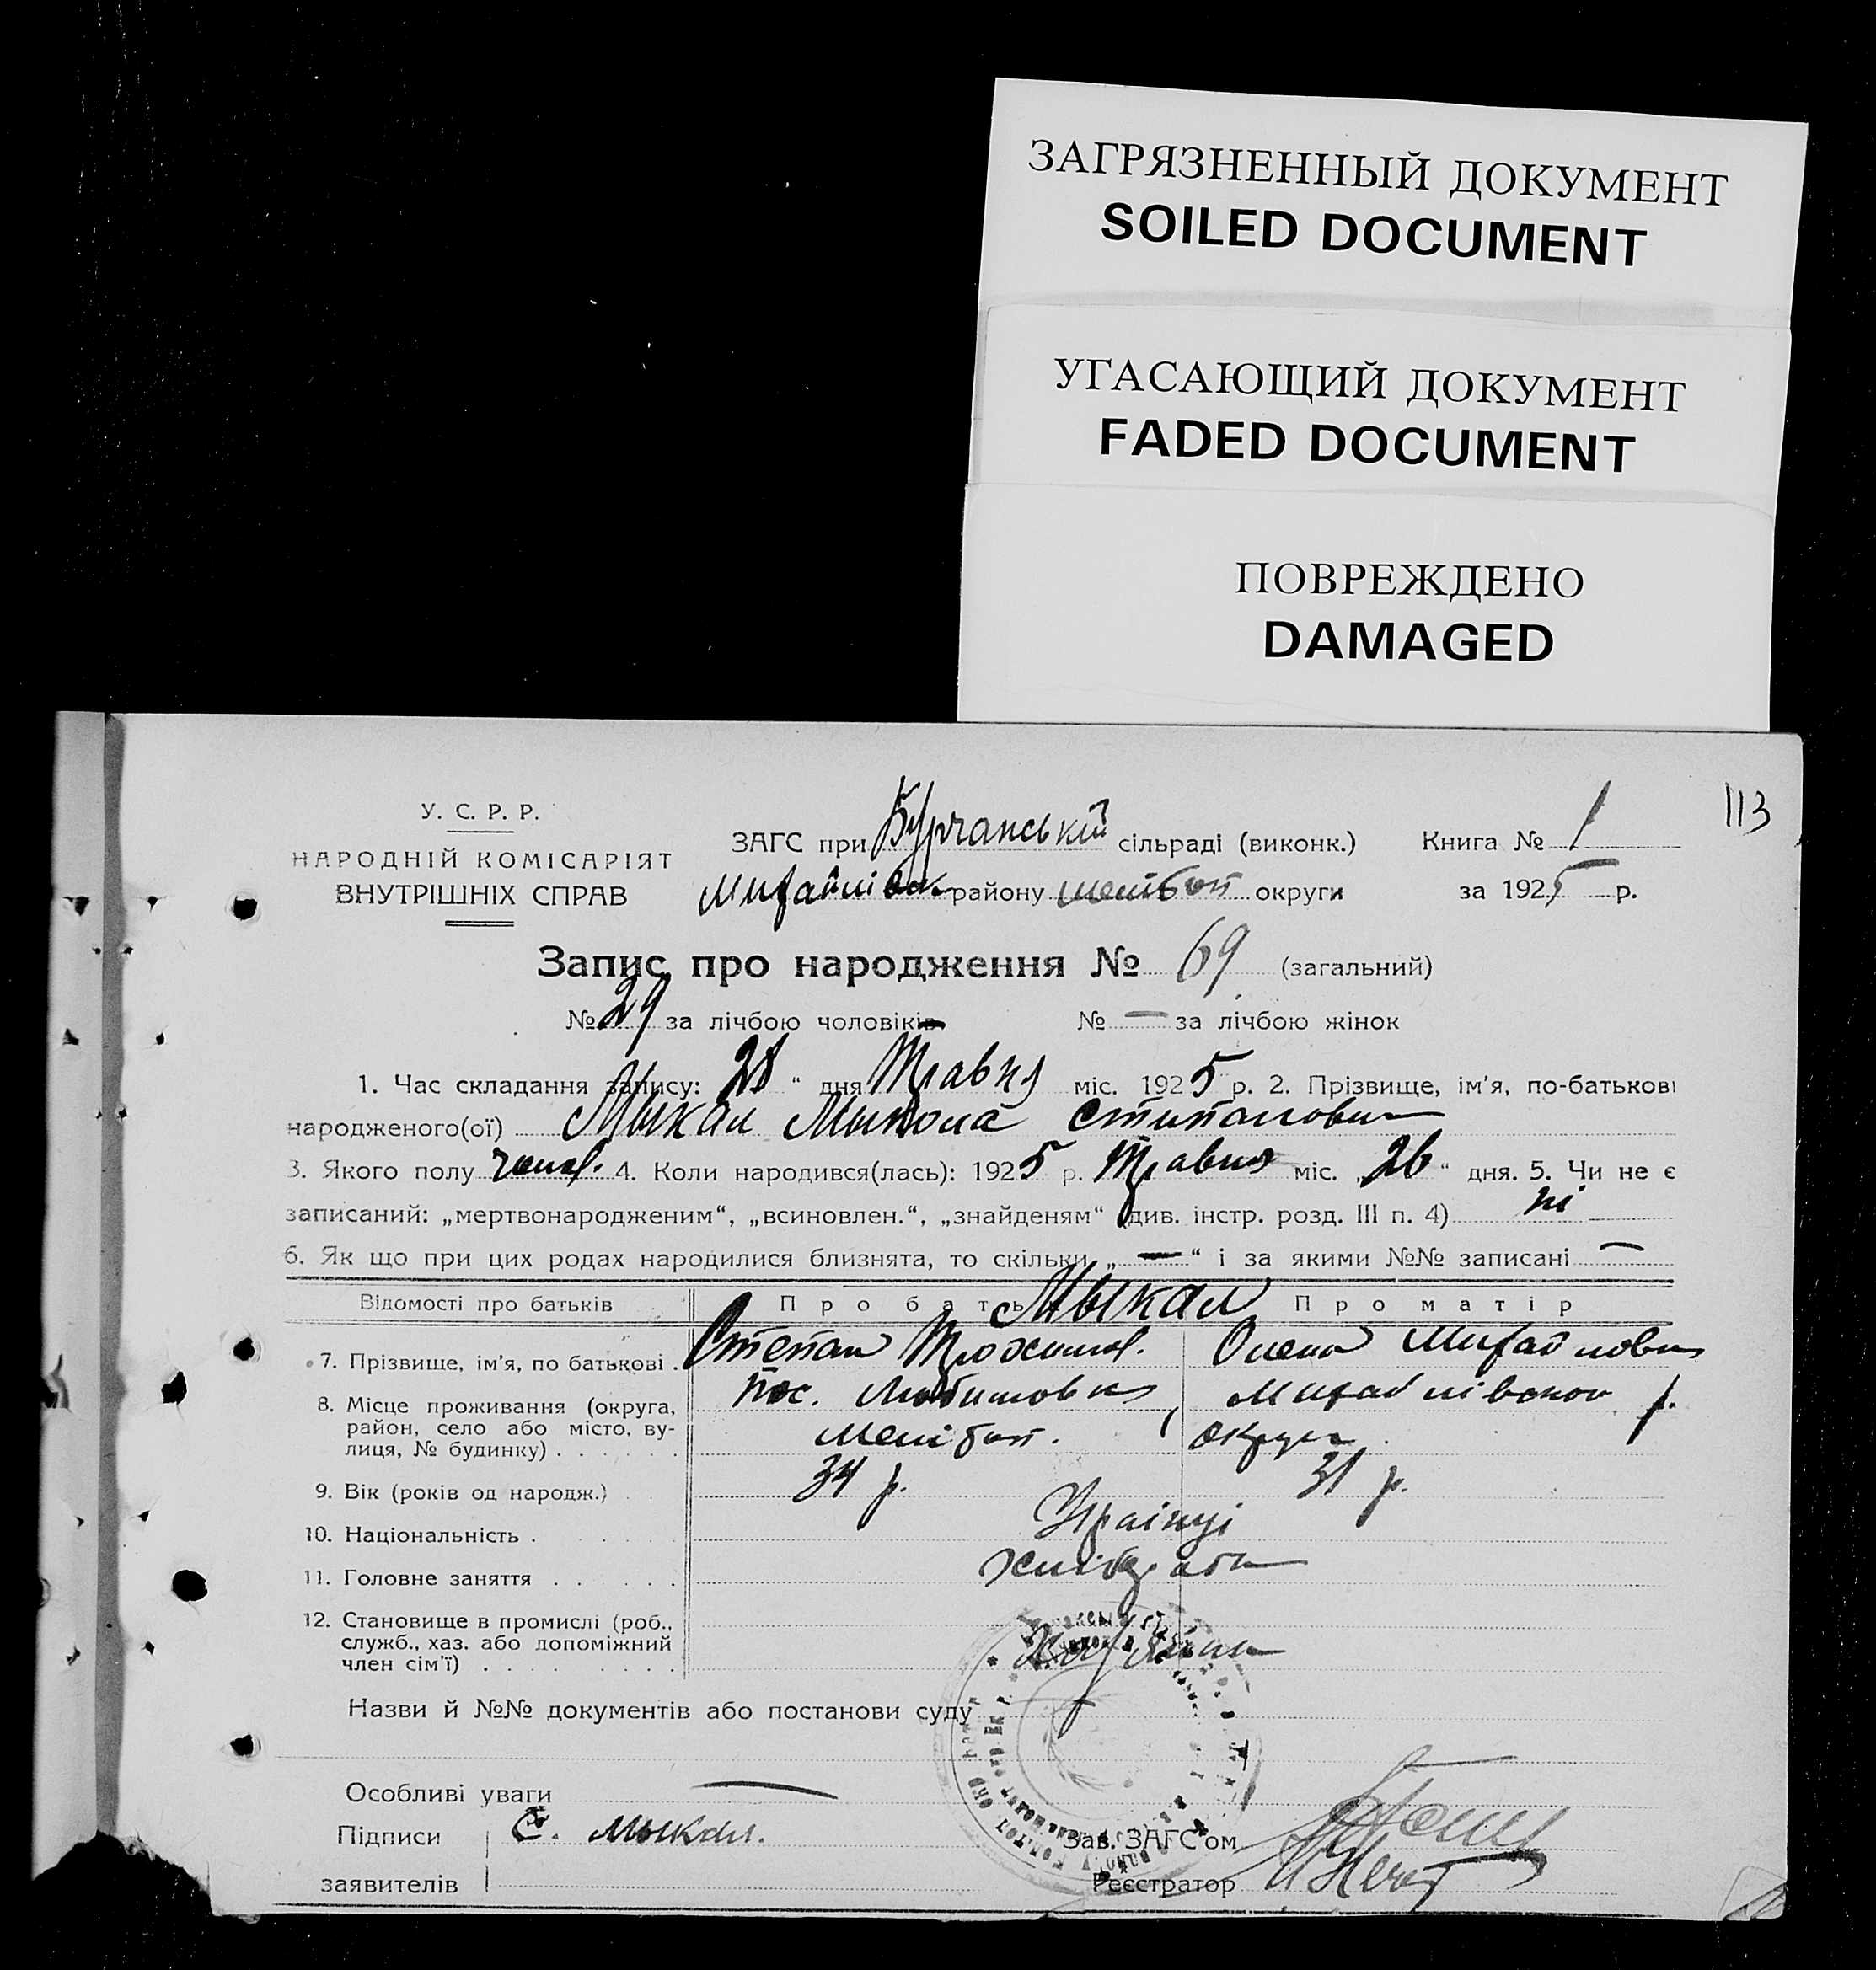 ЗАГРЯЗНЕННЫЙ ДОКУМЕНТ
SOILED DOCUMENT
УГАСАЮЩИЙ ДОКУМЕНТ
FADED DOCUMENT
ПОВРЕЖДЕНО
DAMAGED
113
У. С. Р. Р.
НАРОДНІЙ КОМІСАРІЯТ
ВНУТРІШНІХ СПРАВ
ЗАГС при Бурчанській сільраді (виконк.) Книга № 1
Михайлівськ району мелітоп округи за 1925 р.
Запис про народження № 69 (загальний)
№ 29 за лічбою чоловіків № — за лічбою жінок
1. Час складання запису: 28 “ дня Травня міс. 1925 р. 2. Прізвище, ім’я, по-батькові
народженого(ої) Мыкал Мыкола Стипанович
3. Якого полу чолов. 4. Коли народився(лась): 1925 р. Травня міс. „26“ дня. 5. Чи не є
записаний: „мертвонародженим“, „всиновлен.“, „знайденям“ (див. інстр. розд. III п. 4) ні
6. Як що при цих родах народилися близнята, то скільки „—“ і за якими №№ записані —
Відомості про батьків Про батька Мыкал Про матір
7. Прізвище, ім’я, по батькові . Степан Трохимов. Олена Михайловна
8. Місце проживання (округа, район, село або місто, вулиця, № будинку) . пос. Любимовка Михайлівского р.
мелітоп. округи
9. Вік (років од народж.) 34 р. 31 р.
10. Національність . Українці
11. Головне заняття . . . . . . Хлібороби
12. Становище в промислі (роб.,
служб., хаз. або допоміжний
член сім’ї) . . . . . . . .
Назви й №№ документів або постанови суду
Особливі уваги —
Підписи С. Мыкал.
заявителів
Зав. ЗАГС’ом
Реєстратор